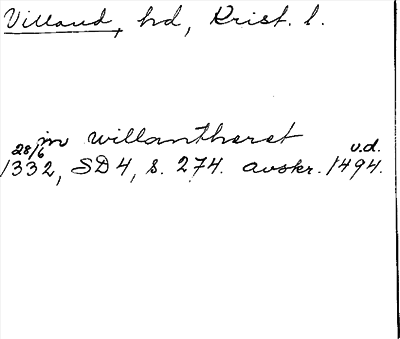 Villand, hd, Krist. l.
in willantheret
28/6 v.d.
1332, SD 4, s. 274. avskr. 1494.